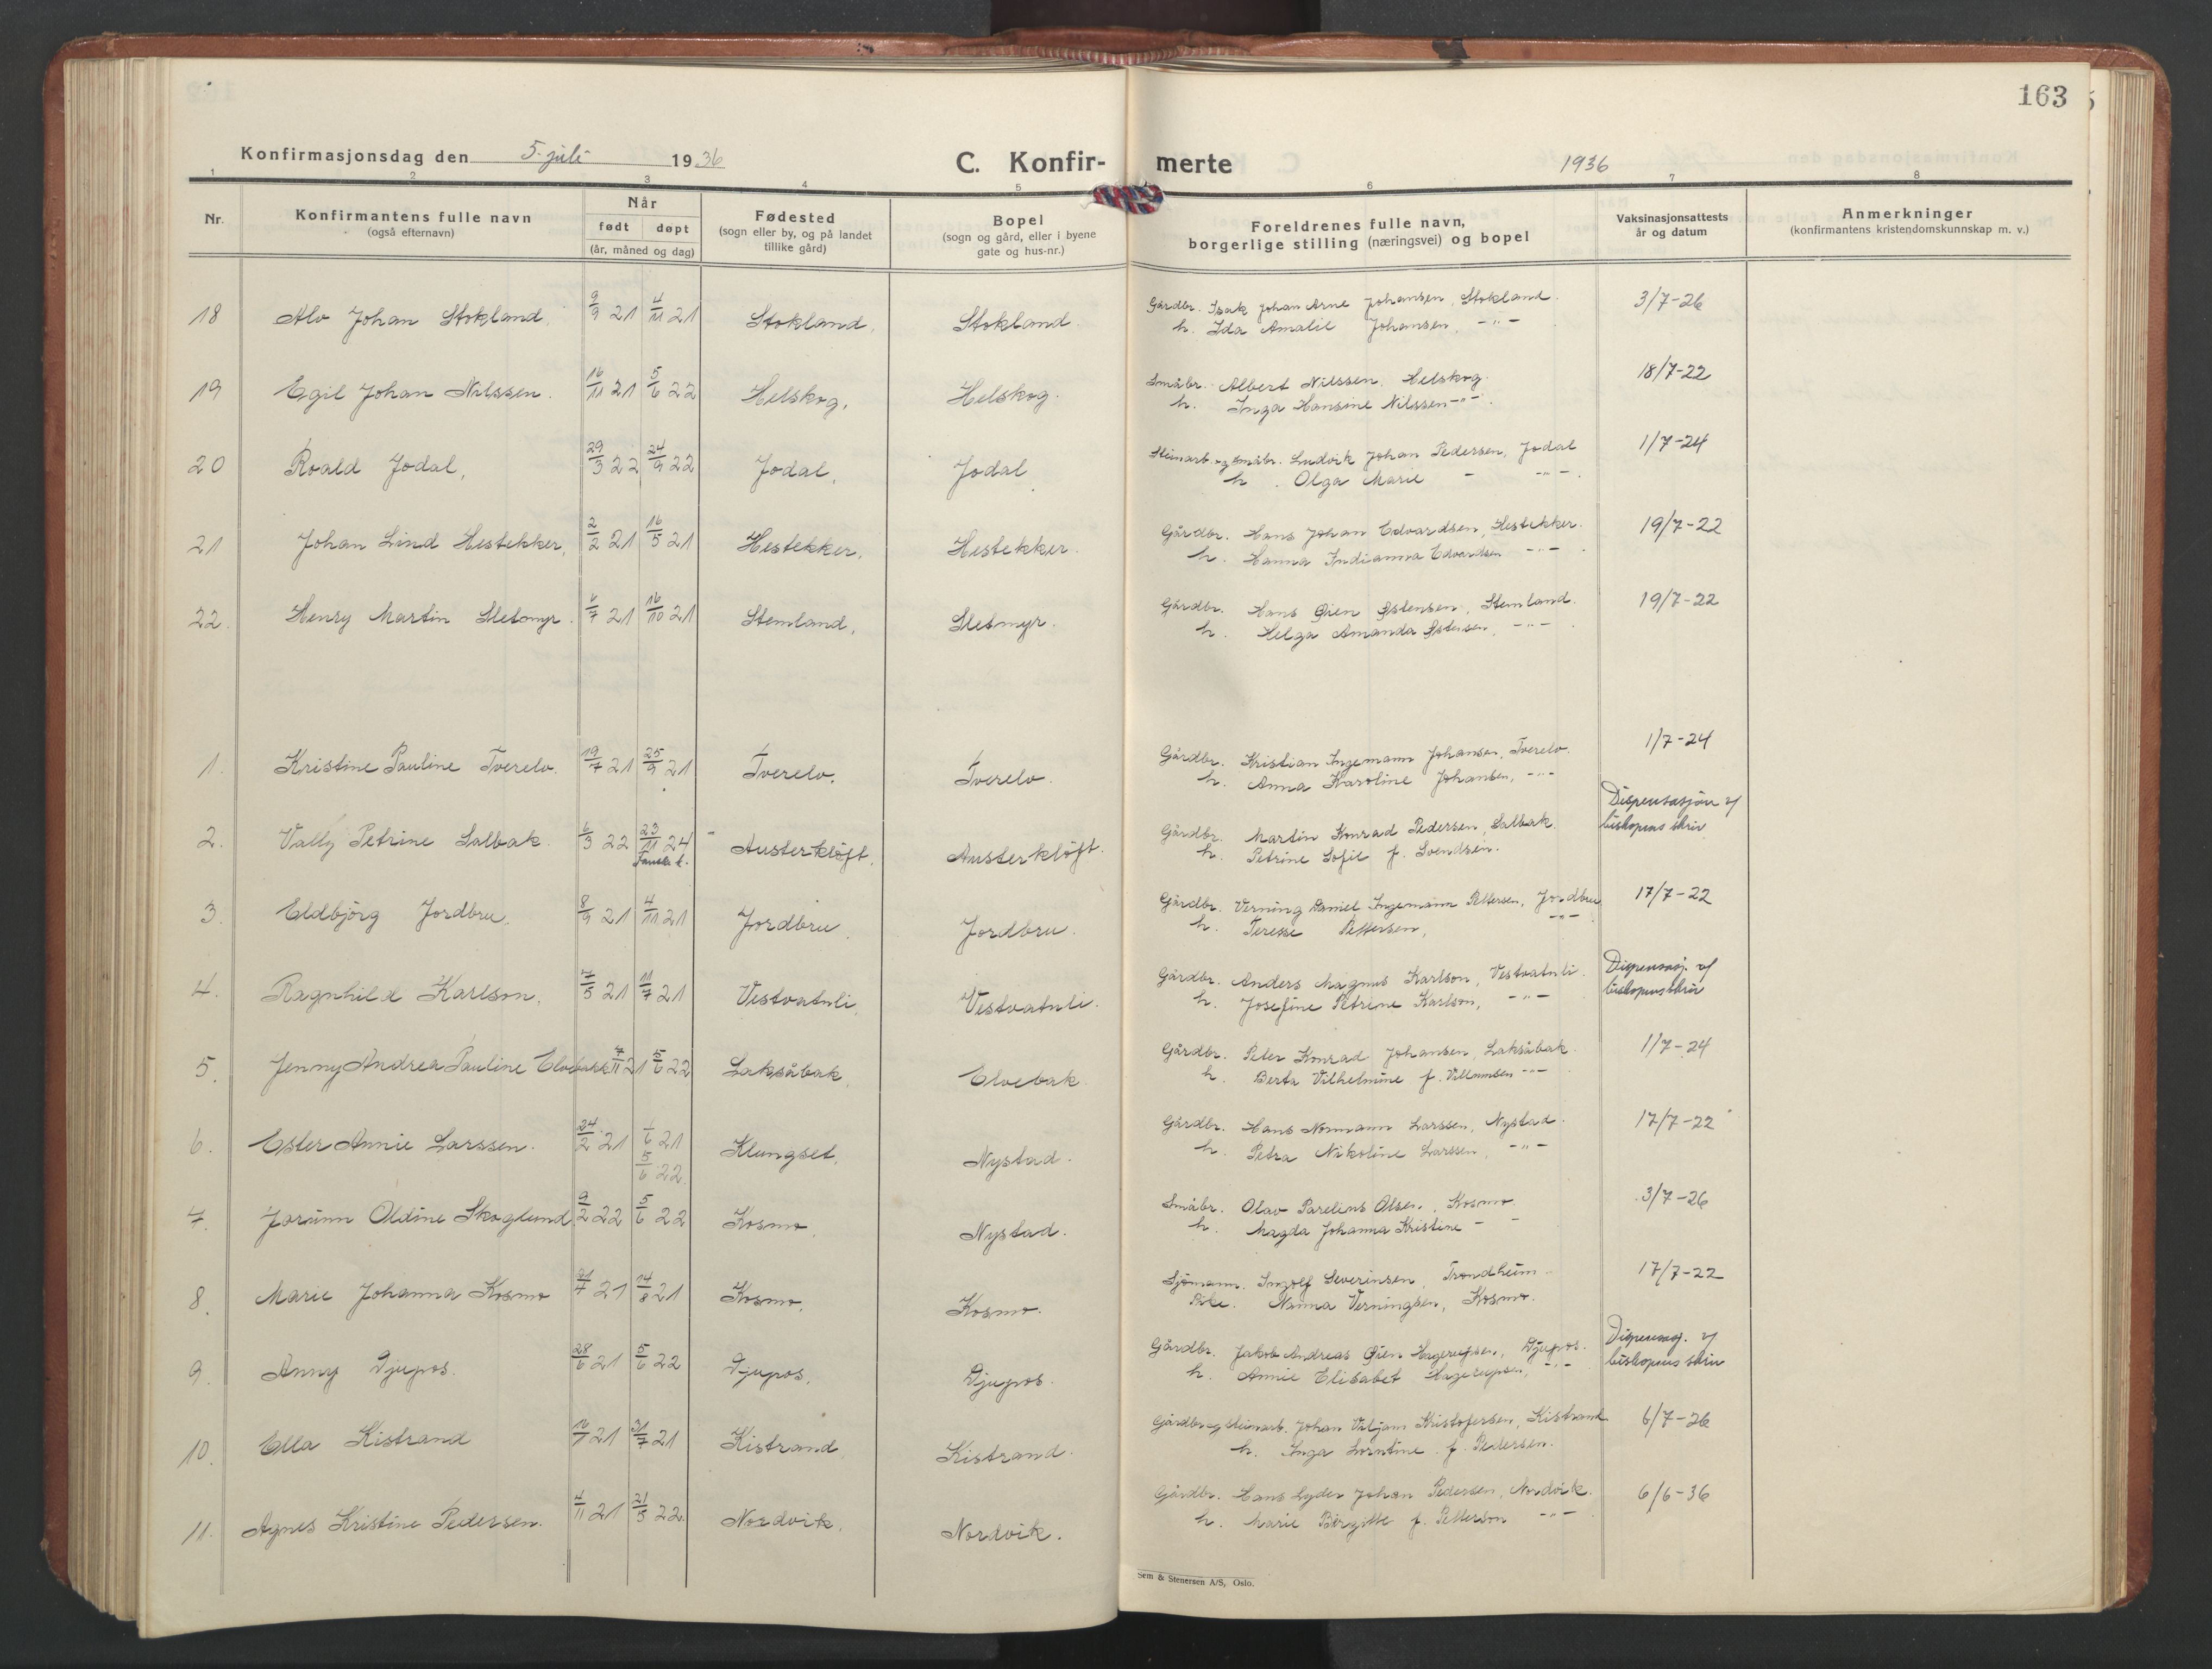 163
Konfirmasjonsdag den 5. juli 1936
C. Konfir- merte 1936
1 2 3 4 5 6 7 8
Nr.
Konfirmantens fulle navn
(også efternavn)
Når
født døpt
(år, måned og dag)
Fødested
(sogn eller by, og på landet
tillike gård)
Bopel
(sogn og gård, eller i byene
gate og hus-nr.)
Foreldrenes fulle navn,
borgerlige stilling (næringsvei) og bopel
Vaksinasjonsattests
år og datum
Anmerkninger
(konfirmantens kristendomskunnskap m. v.)
18 Alv Johan Stokland. 9/9 21 4/11 21 Stokland. Stokland. Gårdbr. Isak Johan Arne Johansen, Stokland. 3/7-26
h. Ida Amalie Johansen, -"-
19 Egil Johan Nilssen. 16/11 21 5/6 22 Helskog. Helskog. Småbr. Albert Nilssen, Helskog. 18/7-22
h. Inga Hansine Nilssen -"-
20 Roald Jodal, 29/3 22 24/9 22 Jodal, Jodal Steinarb. og småbr. Ludvik Johan Pedersen, Jodal 1/7-24
h. Olga Marie - -"-.
21 Johan Lind Hestekker, 2/2 21 16/5 21 Hestekker, Hestekker. Gårdbr. Hans Johan Edvardsen, Hestekker. 19/7-22
h. Hanna Indianna Edvardsen -"-
22. Henry Martin Sletmyr. 6/7 21 16/10 21 Stemland, Sletmyr. Gårdbr. Hans Øien Østensen, Stemland. 19/7-22
h. Helga Amanda Østensen, -"-
1. Kristine Pauline Tverelv. 19/7 21 25/9 21 Tverelv. Tverelv. Gårdbr. Kristian Ingemann Johansen, Tverelv. 1/7-24
h. Anna Karoline Johansen, -"-
2. Vally Petrine Salbak. 6/3 22 23/11 24 Austerkløft. Austerkløft. Gårdbr. Martin Konrad Pedersen, Salbak. Dispensasjon v/
h. Petrine Sofie f. Svendsen. biskopens skriv
3. Eldbjørg Jordbru. 8/9 21 4/11 21 Jordbru. Jordbru. Gårdbr. Verning Daniel Ingemann Pettersen, Jordbru 17/7-22
h. Terese Pettersen, -"-
4. Ragnhild Karlson, 7/5 21 11/7 21 Vestvatnli. Vestvatnli. Gårdbr. Anders Magnus Karlson, Vestvatnli. Dispensasj. v/
h. Josefine Petrine Karlson, -"- biskopens skriv
5. Jenny Andrea Pauline Elvebakk 7/11 21 5/6 22 Laksåbak, Elvebak. Gårdbr. Peter Konrad Johansen, Laksåbak. 1/7-24
h. Berta Vilhelmine f. Villumsen -"-
6. Ester Annie Larssen. 24/2 21 1/6 21 Klungset, Nystad. Gårdbr. Hans Normann Larssen, Nystad. 17/7-22
5/6 22. h. Petra Nikoline Larssen, -"-
7. Jorunn Oldine Skoglund 9/2 22 5/6 22 Kosmo. Nystad. Småbr. Olav Parelius Olsen, Kosmo. 3/7-26
h. Magda Johanna Kristine - -
8. Marie Johanna Kosmo 21/7 21 14/8 21 Kosmo. Kosmo. Sjømann. Ingolf Severinsen, Trondheim 17/7-22
Pike. Nanna Verningsen, Kosmo.
9. Anny Djupos. 28/6 21 5/6 22 Djupos. Djupos. Gårdbr. Jakob Andreas Øien Hagerupsen, Djupos. Dispensasj. v/
h. Annie Elisabet Hagerupsen, -"- biskopens skriv
10. Ella Kistrand 31/7 21 Kistrand. Kistrand. Gårdbr. og steinarb. Johan Viljam Kristofersen, Kistrand 6/7-26
h. Inga Lorntine f. Pedersen.
11. Agnes Kristine Pedersen. 4/11 21 21/5 22. Nordvik. Nordvik. Gårdbr. Hans Lyder Johan Pedersen, Nordvik. 6/6-36
h. Marie Birgitte f. Petterson -"-
Sem & Stenersen A/S, Oslo.